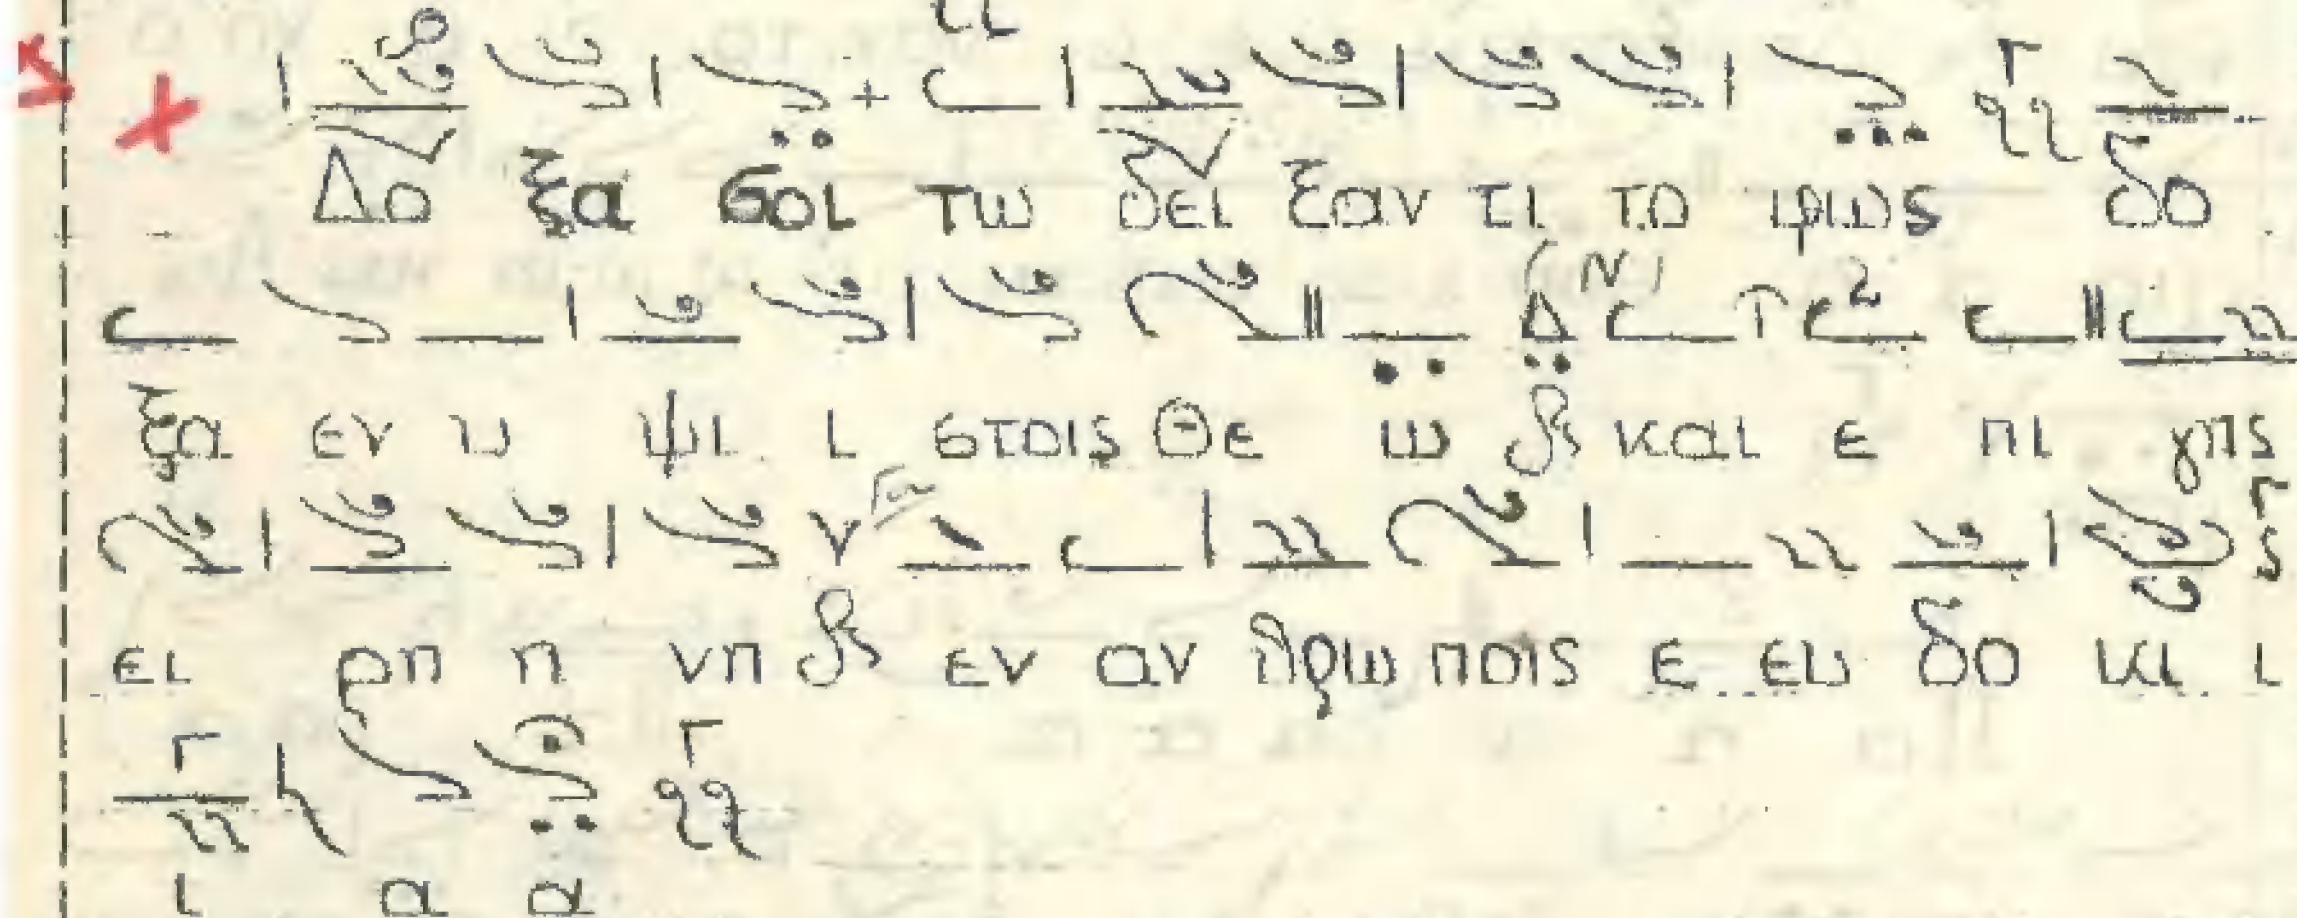 Δο ξα σοι τω δει ξαν τι το φως δο
ξα εν υ ψι ι στοις Θε ω και ε πι γης
ει ρη η νη εν αν θρω ποις ε ευ δο κι ι
ι α α